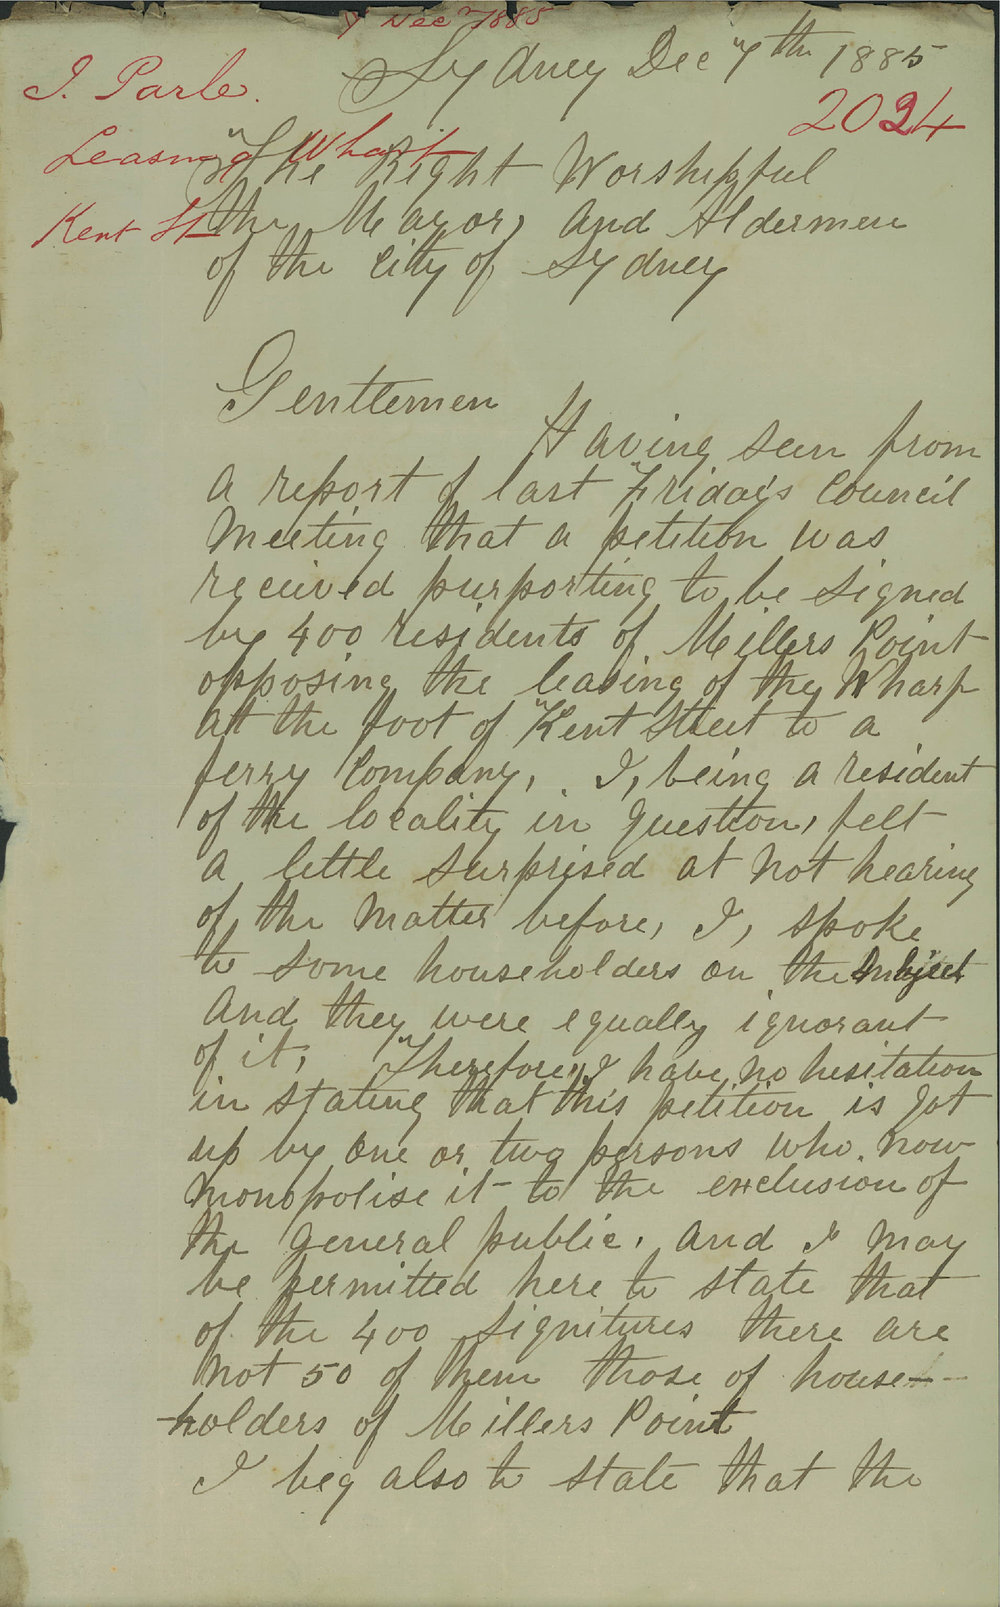 7 Decr 1885
Sydney Dec 7th 1885
J. Parle.
2024
Leasing Wharf
Kent St
The Right Worshipful
the Mayor, and Aldermen
of the City of Sydney
Gentlemen
Having seen from
a report of last Friday's Council
Meeting that a petition was
received purporting to be signed
by 400 residents of Millers Point
opposing the leasing of the Wharf
at the foot of Kent Street to a
ferry Company, I, being a resident
of the locality in question, felt
a little surprised at not hearing
of the matter before, I, spoke
to some householders on the subject
and they were equally ignorant
of it, Therefore, I have no hesitation
in stating that this petition is got
up by one or two persons who now
monopolise it to the exclusion of
the general public. And I may
be permitted here to state that
of the 400 signitures there are
not 50 of them those of house-
holders of Millers Point
I beg also to state that the